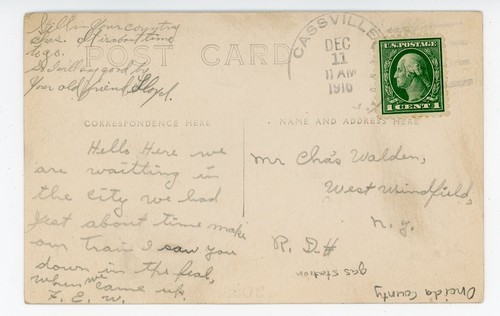 Still in your country
Chas. It is about time
to go.
So I will say good by
Your old friend Floyd.
POST CARD
CASSVILLE
DEC
11
11 AM
1916
U.S. POSTAGE
1 CENT 1
CORRESPONDENCE HERE
NAME AND ADDRESS HERE
Hello Here we
are waitting in
the city we had
Jest about time make
our train I saw you
down in the feal,
when we came up.
F. E. W.
Mr Chas Walden,
West Windfield,
N. Y.
R. D#
gas station
Oneida County